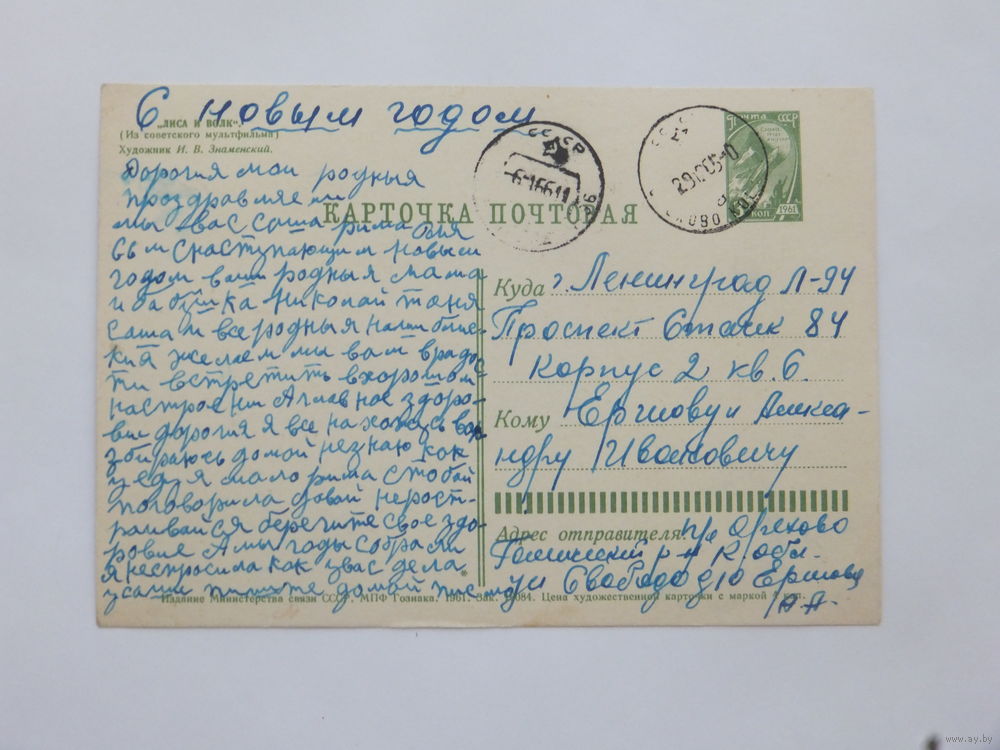 С новым годом
„ЛИСА И ВОЛК“.
(Из советского мультфильма)
Художник И. В. Знаменский.
Дорогия мои родныя
проздравляем
мы вас саша рима оля
с наступающим новым
годом ваши родныя мама
и бабушка Николай таня
саша и все родныя наши близ-
кия желаем мы вам врадос
ти встретить вхорошом
настроении Аглавное здоро-
вия дорогия я все нахожусь
збираюсь домой незнаю как
я мало рима стобой
поговорила давай нерост-
раивайся берегите свое здо-
ровие Амы годы собрали
я неспросила как увас дела
пишите домой письмо
КАРТОЧКА ПОЧТОВАЯ
СССР
6-1-66-11
29
ПОЧТА СССР
КОП
1961
Куда г. Ленинград Л-94
Проспект Стачек 84
Корпус 2 кв. 6.
Кому Ершову и Алекса-
ндру Ивановичу
Адрес отправителя: п/о Орехово
р-н К. обл.
ул Свободо д 10 Ершова
А А.
Издание Министерства связи СССР. МПФ Гознака. 1961. Зак. Цена художественной карточки с маркой 4 коп.
www.ay.by